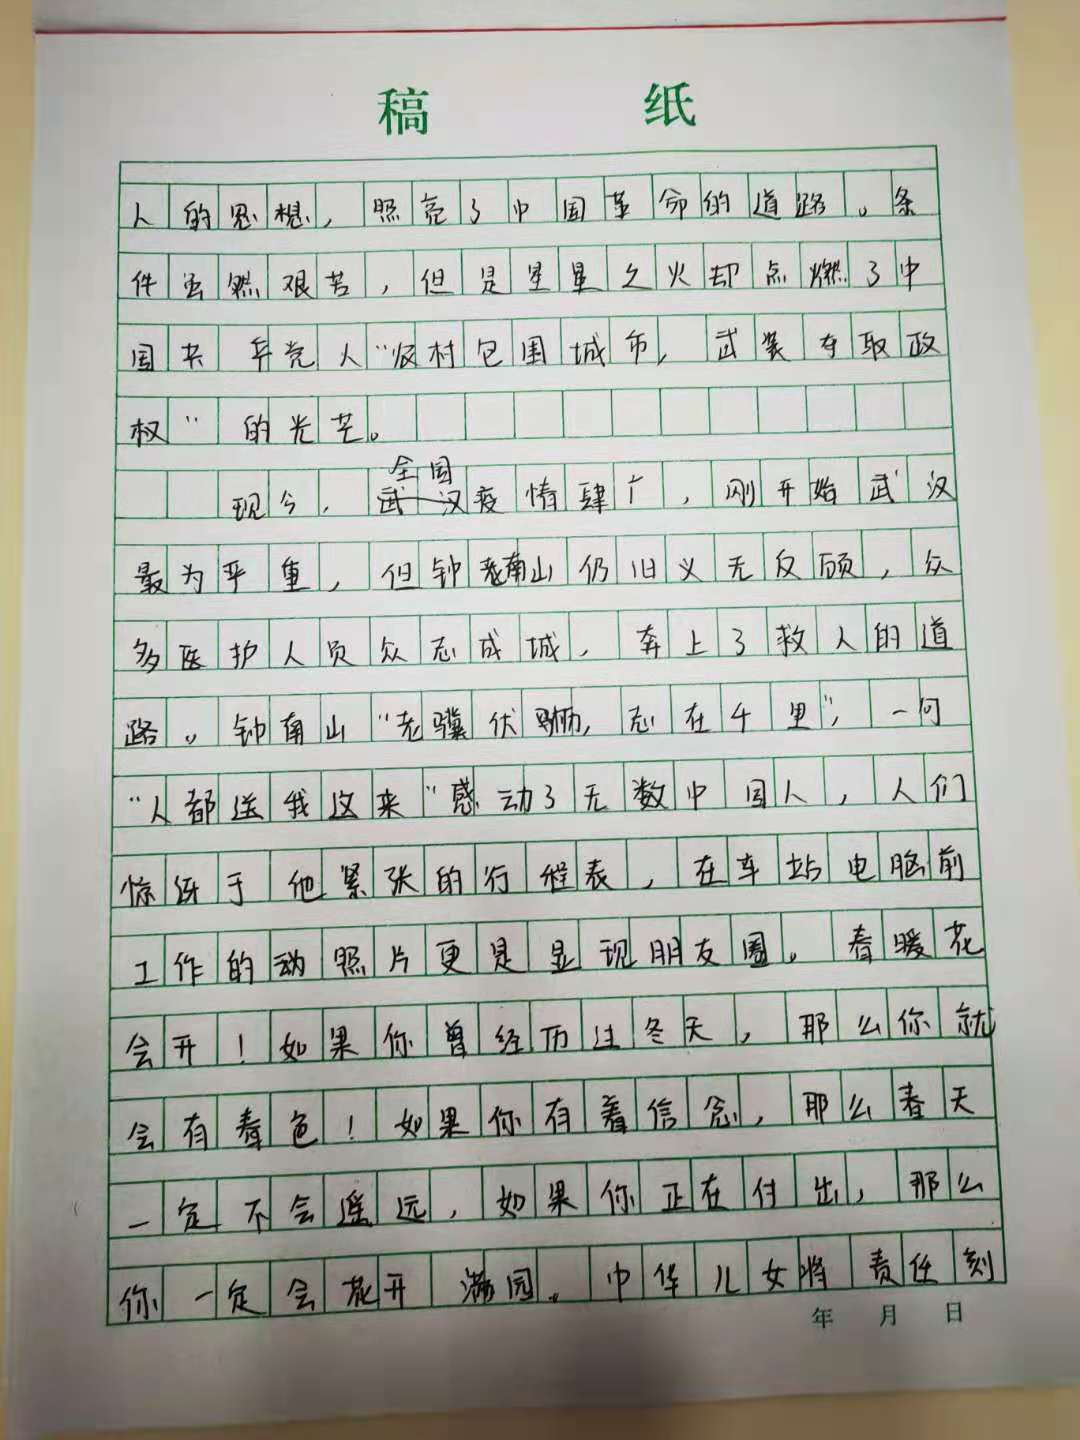 稿 纸
人的思想,照亮了中国革命的道路。条
件虽然艰苦,但是星星之火却点燃了中
国共产党人“农村包围城市,武装夺取政
权”的光芒。
全国
现今,武汉疫情肆广,刚开始武汉
最为严重,但钟老南山仍旧义无反顾,众
多医护人员众志成城,奔上了救人的道
路。钟南山“老骥伏骊,志在千里”,一句
“人都送我这来”感动了无数中国人,人们
惊讶于他紧张的行程表,在车站电脑前
工作的动照片更是显现朋友圈。春暖花
会开!如果你曾经历过冬天,那么你就
会有春色!如果你有着信念,那么春天
一定不会遥远,如果你正在付出,那么
你一定会花开满园。中华儿女将责任刻
年 月 日